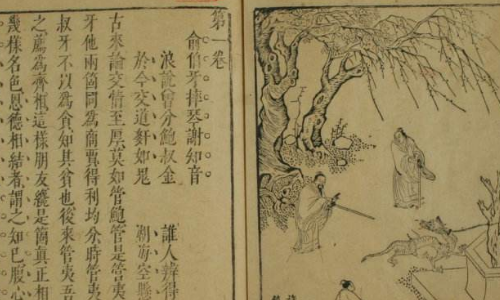 第一卷
俞伯牙摔琴謝知音
浪說曾分鮑叔金　誰人辨得
於今交道奸如鬼　湖海空懸
古來論交情至厚莫如管鮑管是管夷
牙他兩箇同為商賈得利均分時管夷
叔牙不以為貪知其貧也後來管夷吾
之薦為齊相這樣朋友纔是箇真正相
幾樣名色恩德相結者謂之知己腹心